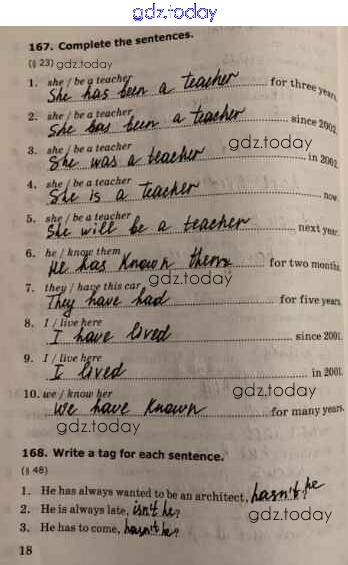 gdz.today
167. Complete the sentences.
(§ 23) gdz.today
1. she / be a teacher
She has been a teacher for three years.
2. she / be a teacher
She has been a teacher since 2002.
gdz.today
3. she / be a teacher
She was a teacher in 2002.
4. she / be a teacher
She is a teacher now.
5. she / be a teacher
She will be a teacher next year.
6. he / know them
He has known them for two months.
gdz.today
7. they / have this car
They have had for five years.
8. I / live here
I have lived since 2001.
9. I / live here
I lived in 2001.
10. we / know her gdz.today
We have known for many years.
gdz.today
168. Write a tag for each sentence.
(§ 48) gdz.today
1. He has always wanted to be an architect, hasn't he
2. He is always late, isn't he?
gdz.today
3. He has to come, hasn't he?
18